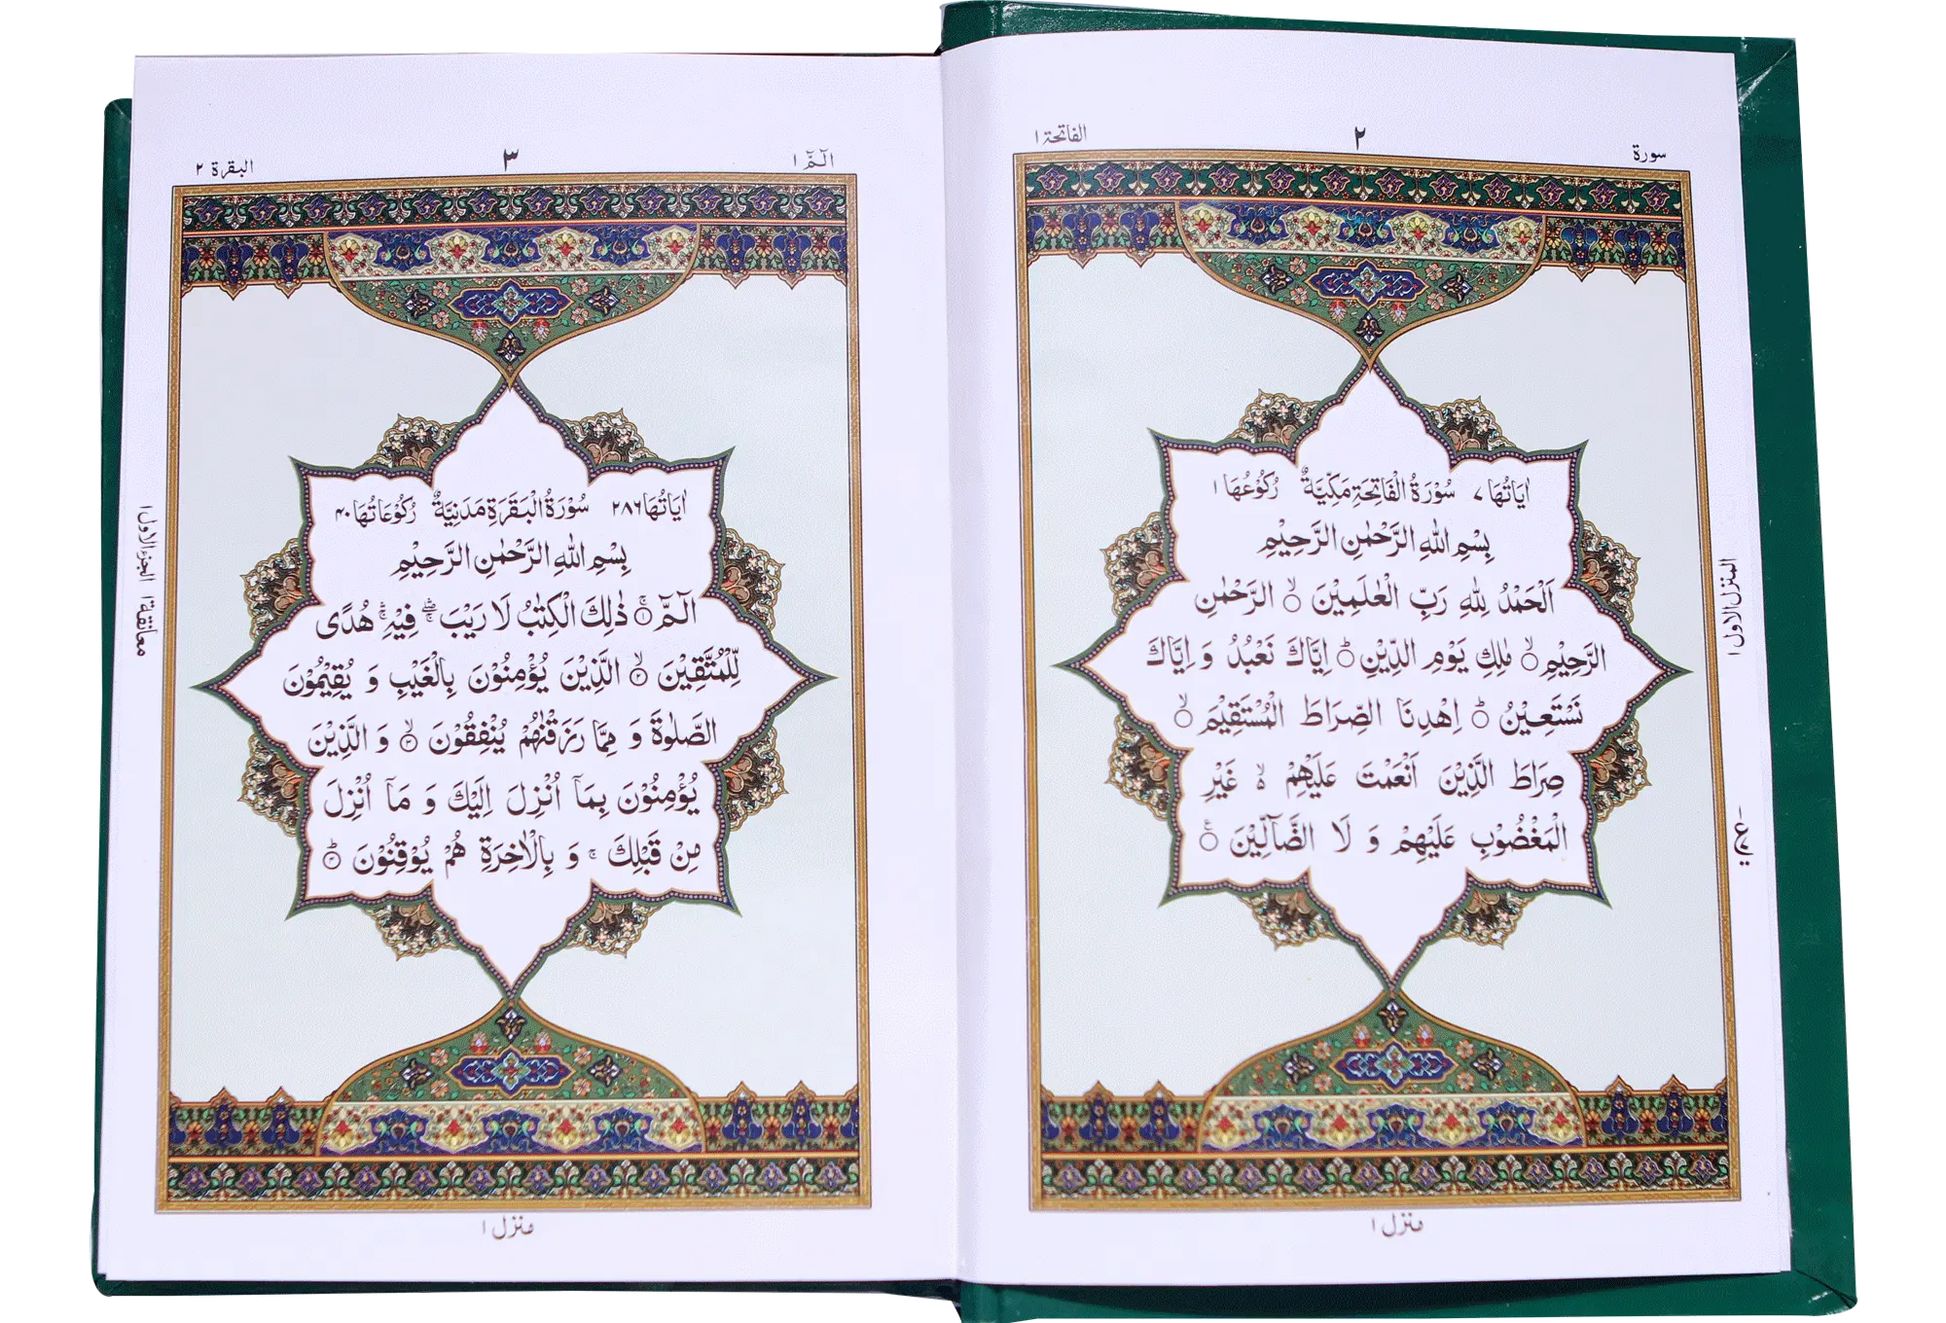 سورة
٢
الفاتحة ١
اٰيَاتُهَا ٧ سُوْرَةُ الْفَاتِحَةِ مَكِّيَّةٌ رُكُوْعُهَا ١
بِسْمِ اللّٰهِ الرَّحْمٰنِ الرَّحِيْمِ
اَلْحَمْدُ لِلّٰهِ رَبِّ الْعٰلَمِيْنَ ۙ الرَّحْمٰنِ
الرَّحِيْمِ ۙ مٰلِكِ يَوْمِ الدِّيْنِ ؕ اِيَّاكَ نَعْبُدُ وَ اِيَّاكَ
نَسْتَعِيْنُ ؕ اِهْدِنَا الصِّرَاطَ الْمُسْتَقِيْمَ ۙ
صِرَاطَ الَّذِيْنَ اَنْعَمْتَ عَلَيْهِمْ ۙ غَيْرِ
الْمَغْضُوْبِ عَلَيْهِمْ وَ لَا الضَّآلِّيْنَ
المنزل الاول ١
منزل ١
الٓمّٓ ١
٣
البقرة ٢
اٰيَاتُهَا ٢٨٦ سُوْرَةُ الْبَقَرَةِ مَدَنِيَّةٌ رُكُوْعَاتُهَا ۴٠
بِسْمِ اللّٰهِ الرَّحْمٰنِ الرَّحِيْمِ
الٓمّٓ ۚ ١ ذٰلِكَ الْكِتٰبُ لَا رَيْبَ ۛۖ فِيْهِ ۛۚ هُدًى
لِّلْمُتَّقِيْنَ ۙ ٢ الَّذِيْنَ يُؤْمِنُوْنَ بِالْغَيْبِ وَ يُقِيْمُوْنَ
الصَّلٰوةَ وَ مِمَّا رَزَقْنٰهُمْ يُنْفِقُوْنَ ۙ ٣ وَ الَّذِيْنَ
يُؤْمِنُوْنَ بِمَآ اُنْزِلَ اِلَيْكَ وَ مَآ اُنْزِلَ
مِنْ قَبْلِكَ ۚ وَ بِالْاٰخِرَةِ هُمْ يُوْقِنُوْنَ ؕ ۴
معانقة ١ الجزء الاول ١
منزل ١